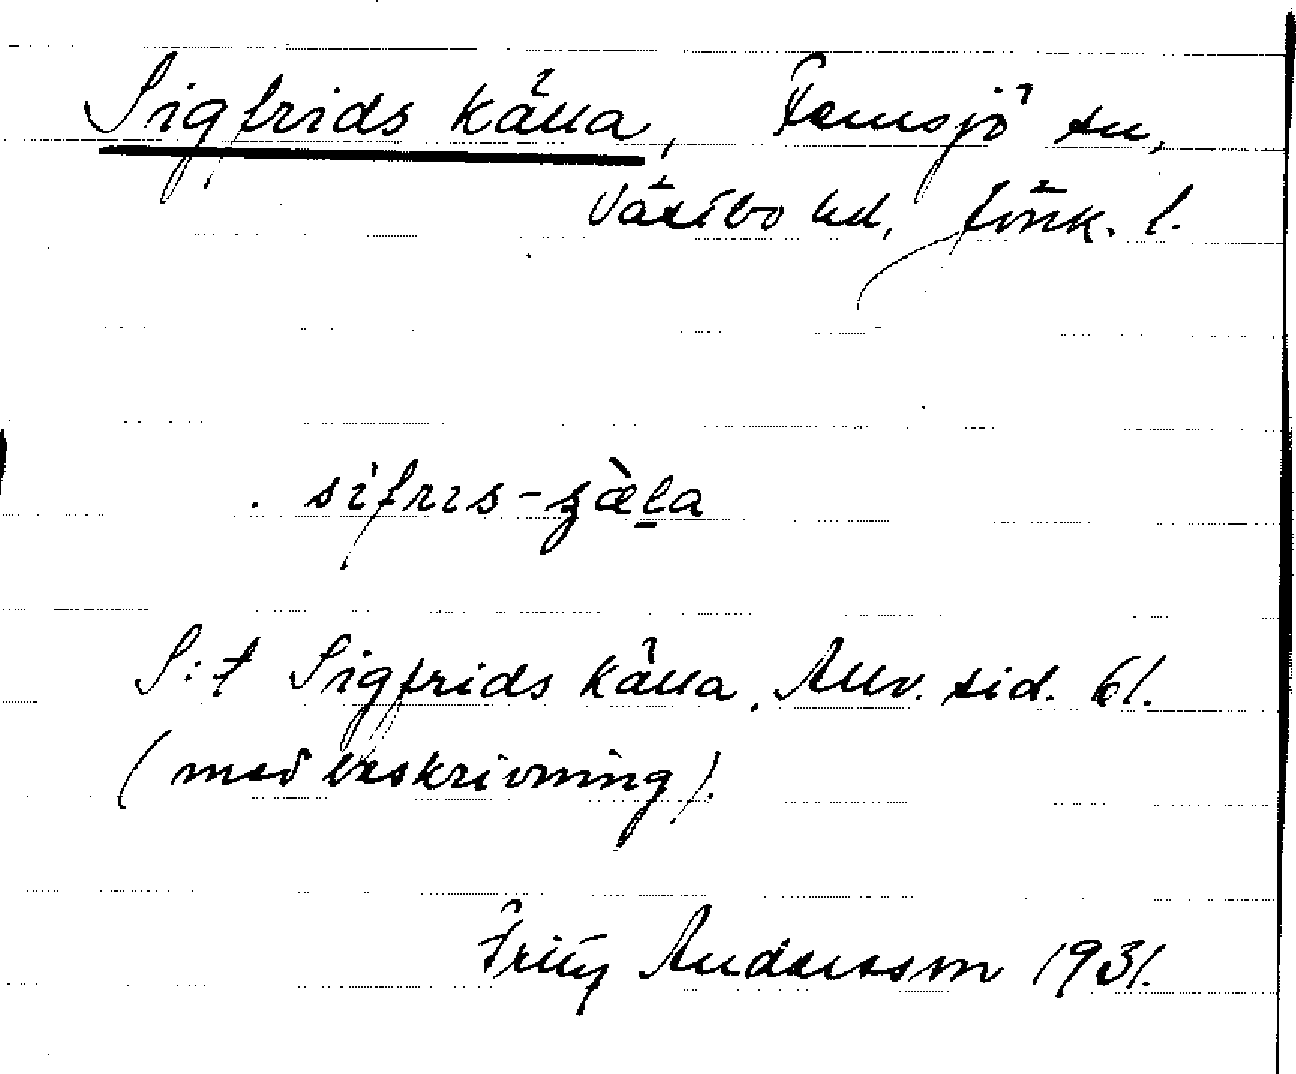 Sigfrids källa, Femsjö sn,
Västbo hd, Jönk. l.
sifrıs-
S:t Sigfrids källa. Allv. sid. 61.
(med beskrivning).
Frity Andersson 1931.